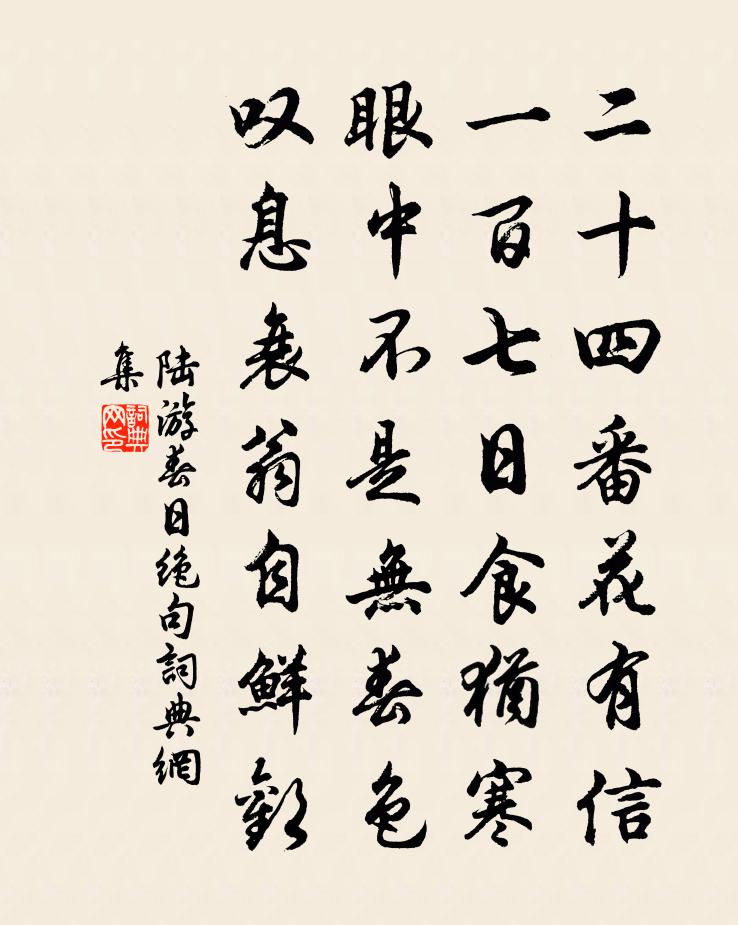 二十四番花有信
一百七日食猶寒
眼中不是無春色
叹息衰翁自鮮歡
陆游春日绝句詞典網
集
詞典网印